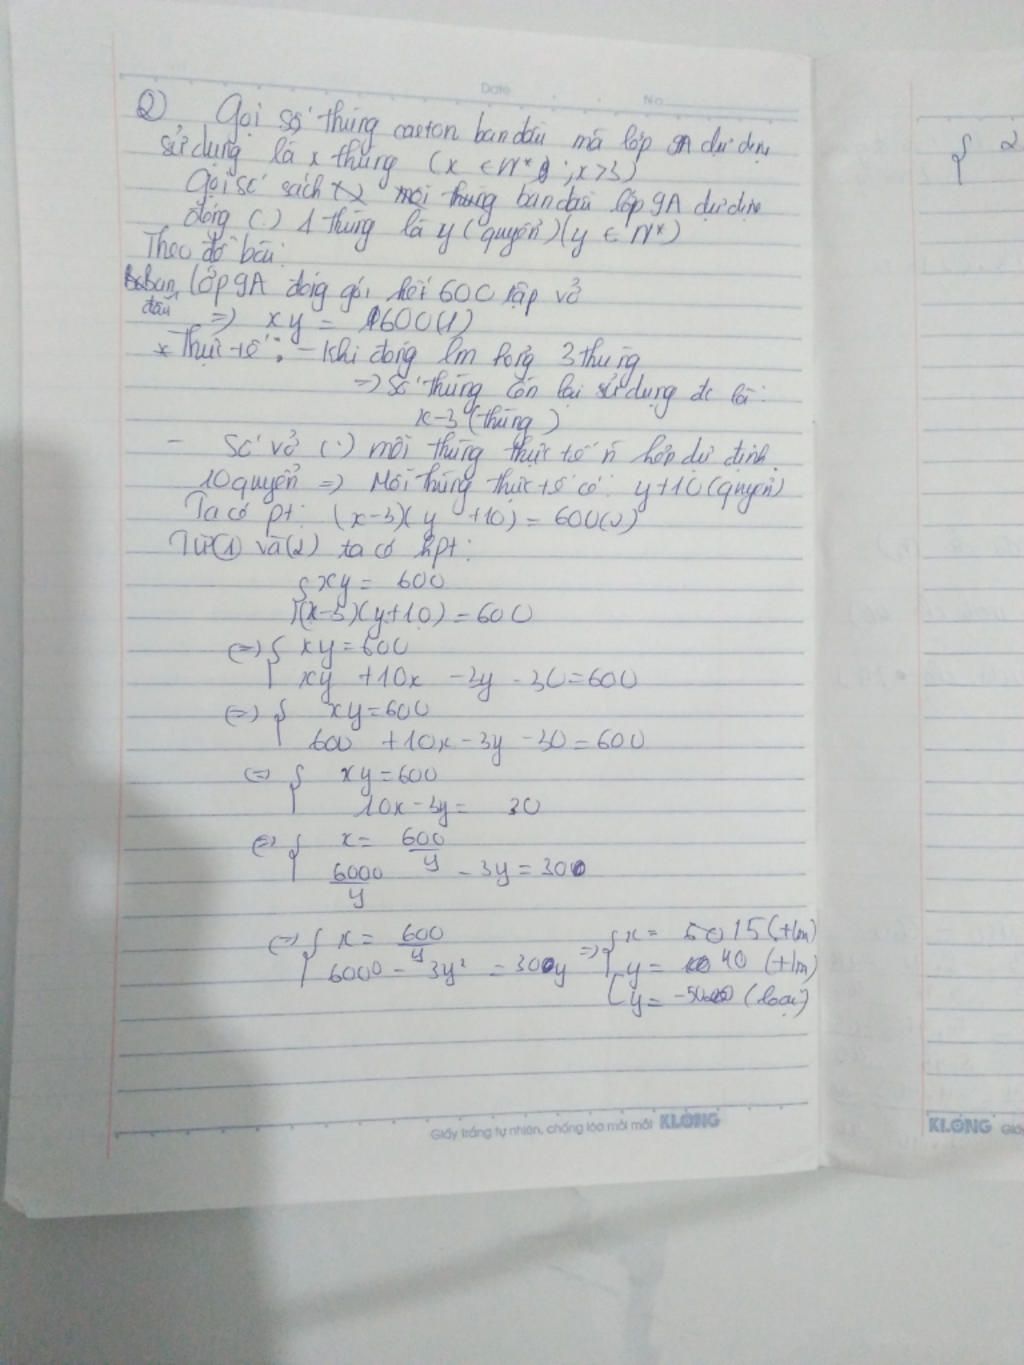 Date No
2) Gọi số thùng carton ban đầu mà lớp 9A dự định
sử dụng là x thùng (x ∈ N* ; x>3)
Gọi số sách mỗi thùng ban đầu lớp 9A dự định
đóng (.) 1 thùng là y (quyển) (y ∈ N*)
Theo đề bài:
Ban đầu, lớp 9A đóng gói hết 600 tập vở
=> xy = 600 (1)
* Thực tế: - Khi đóng lm hỏng 3 thùng
=> Số thùng còn lại sử dụng đc là:
x-3 (thùng)
- Số vở (.) mỗi thùng thực tế n hơn dự định
10 quyển => Mỗi thùng thực tế có: y+10 (quyển)
Ta có pt: (x-3)(y +10) = 600 (2)
Từ (1) và (2) ta có hpt:
{ xy = 600
(x-3)(y+10) = 600
<=> { xy = 600
xy +10x -3y -30 = 600
<=> { xy = 600
600 +10x -3y -30 = 600
<=> { xy = 600
10x -3y = 30
<=> { x = 600/y
6000/y - 3y = 30
<=> { x = 600/y => { x = 15 (t/m)
6000 - 3y² = 30y [ y = 40 (t/m)
[ y = -50 (loại)
Giấy trắng tự nhiên, chống lóa mỏi mắt KLONG
{ 2
KLONG Giấy